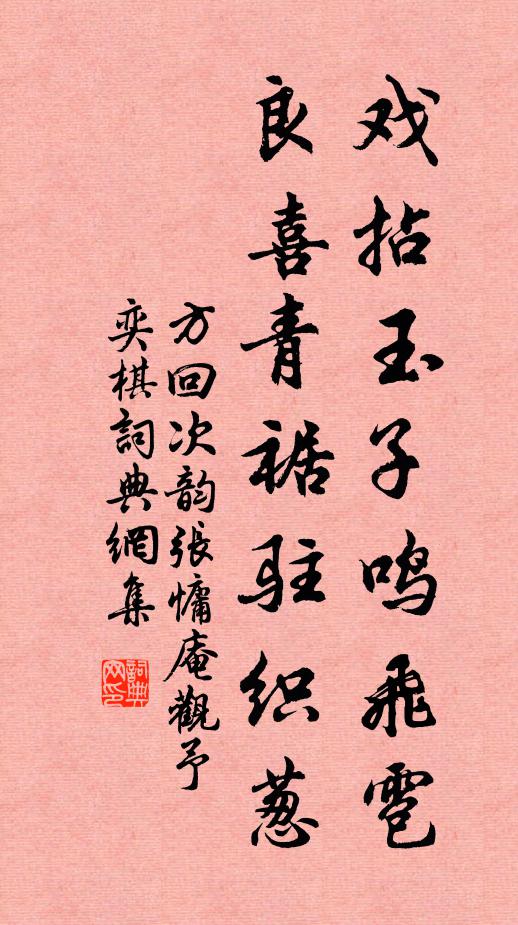 戏拈玉子鸣飞雹
良喜青裾驻织葱
方回次韵张慵庵觀予
奕棋詞典網集
詞典网印